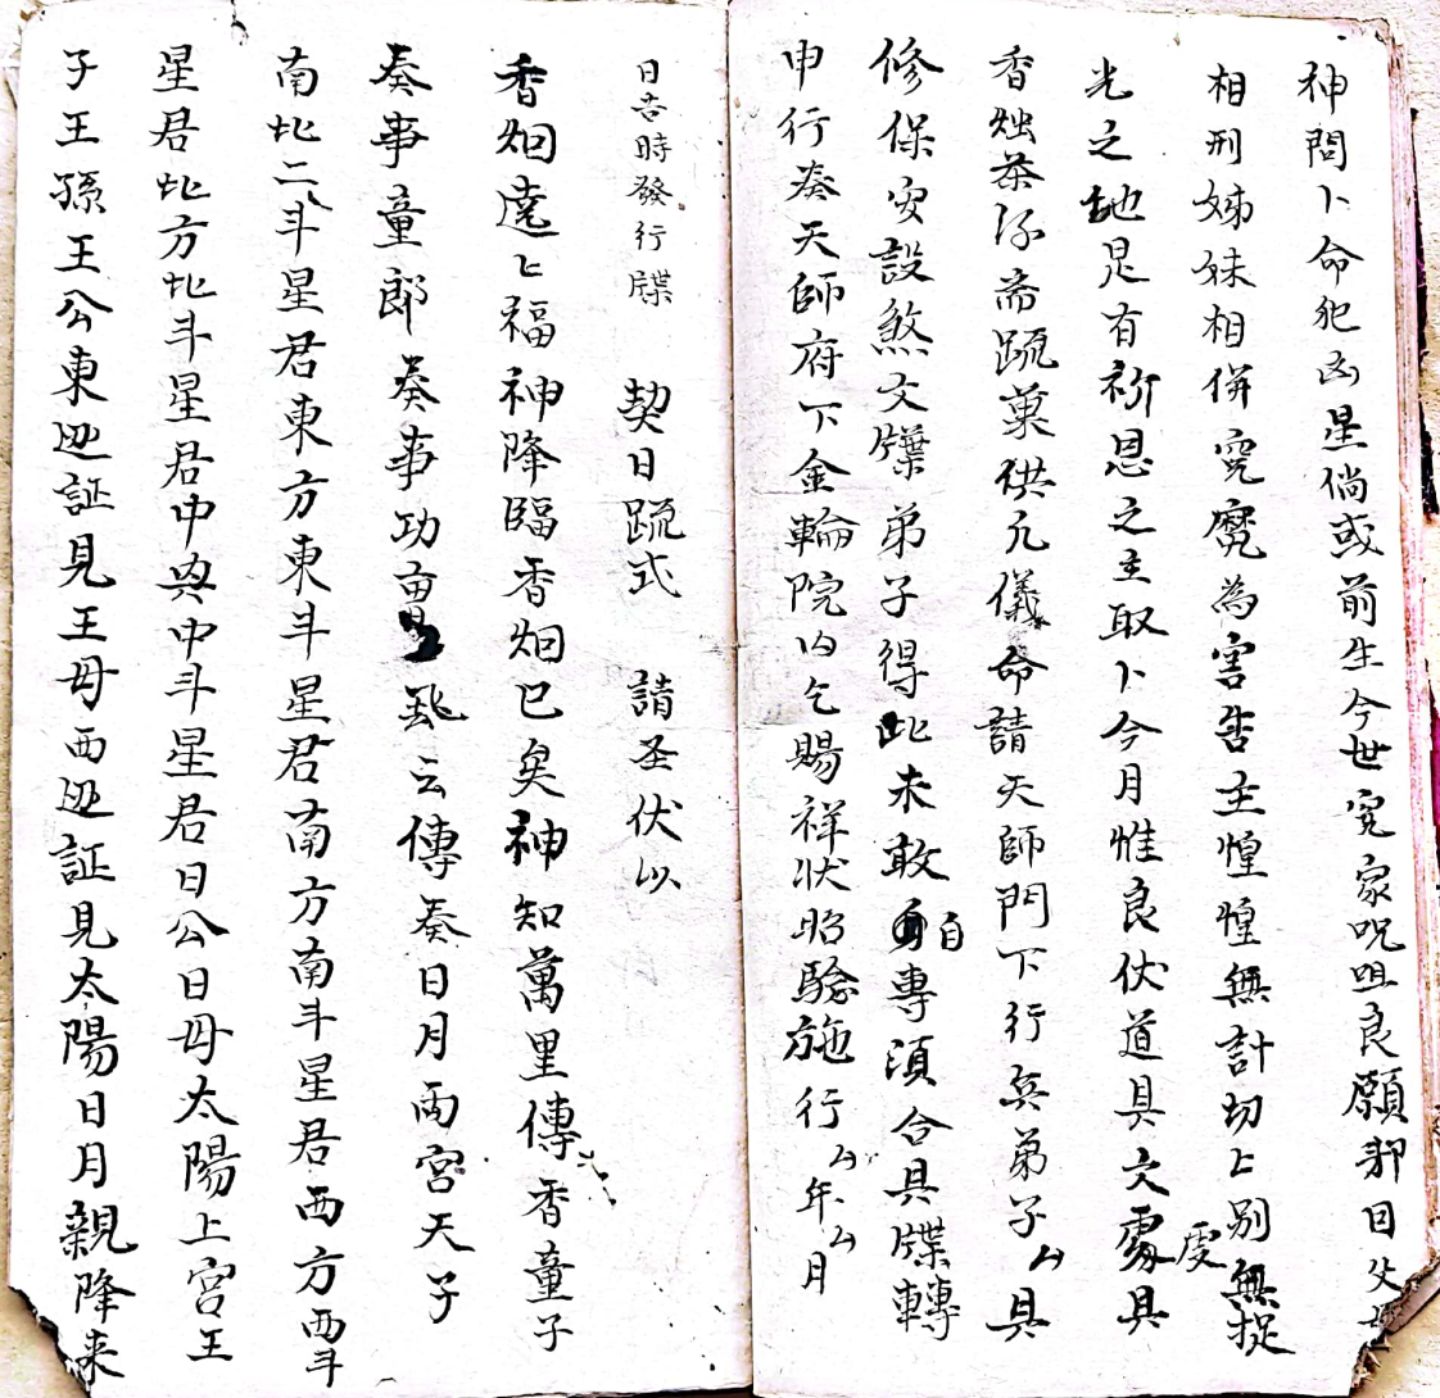 神問卜命犯凶星倘或前生今世寃家呪咀良願邪目父母
相刑姊妹相併寃魔為害告主惶惶無計切上別無捉
光之地是有祈恩之主取卜今月惟良伏道具文處虔具
香烛茶添斋蔬菓供允儀命請天師門下行兵弟子厶具
修保安設煞文牒弟子得此未敢自專須合具牒轉
申行奏天師府下金輪院內乞賜祥状昭驗施行厶年厶月
日吉時發行牒 契日疏式 請圣伏以
香烟遶匕福神降臨香烟已矣神知萬里傳香童子
奏事童郎奏事功曹飛云傳奏日月兩宮天子
南北二斗星君東方東斗星君南方南斗星君西方西斗
星君北方北斗星君中央中斗星君日公日母太陽上宮王
子王孫王公東边証見王母西边証見太陽日月親降来